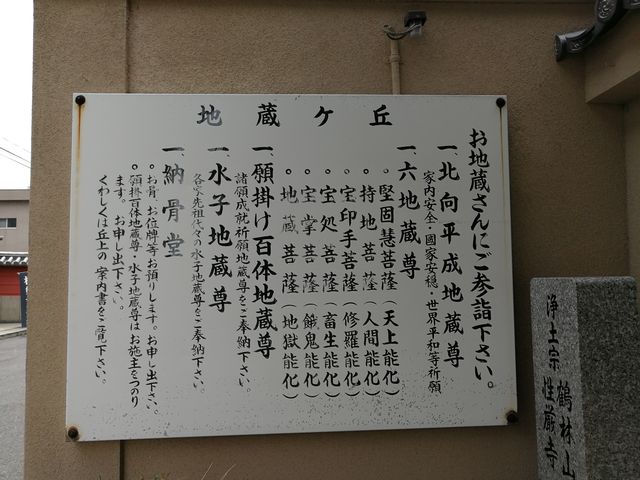 地蔵ケ丘
お地蔵さんにご参詣下さい。
一、北向平成地蔵尊
家内安全・國家安穏・世界平和等祈願
一、六地蔵尊
・堅固慧菩薩(天上能化)
・持地菩薩(人間能化)
・宝印手菩薩(修羅能化)
・宝処菩薩(畜生能化)
・宝掌菩薩(餓鬼能化)
・地蔵菩薩(地獄能化)
一、願掛け百体地蔵尊
諸願成就祈願地蔵尊をご奉納下さい。
一、水子地蔵尊
各家先祖代々の水子地蔵尊をご奉納下さい。
一、納骨堂
・お骨、お位牌等お預りします。お申し出下さい。
・願掛百体地蔵尊・水子地蔵尊はお施主をつのり
ます。お申し出下さい。
くわしくは丘上の案内書をご覧下さい。
浄土宗 鶴林山
性厳寺